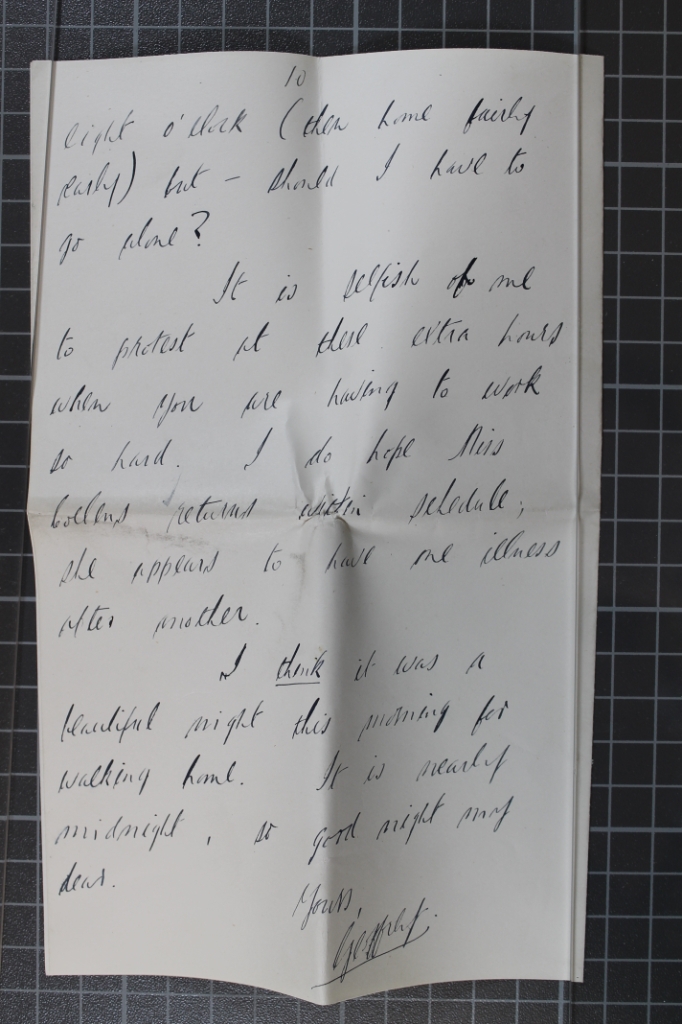 10
eight o'clock (then home fairly
early) but – should I have to
go alone?
It is selfish of me
to protest at these extra hours
when you are having to work
so hard. I do hope Miss
returns within schedule;
she appears to have one illness
after another.
I think it was a
beautiful night this morning for
walking home. It is nearly
midnight, so good night my
dear.
Yours,
Geoffrey.